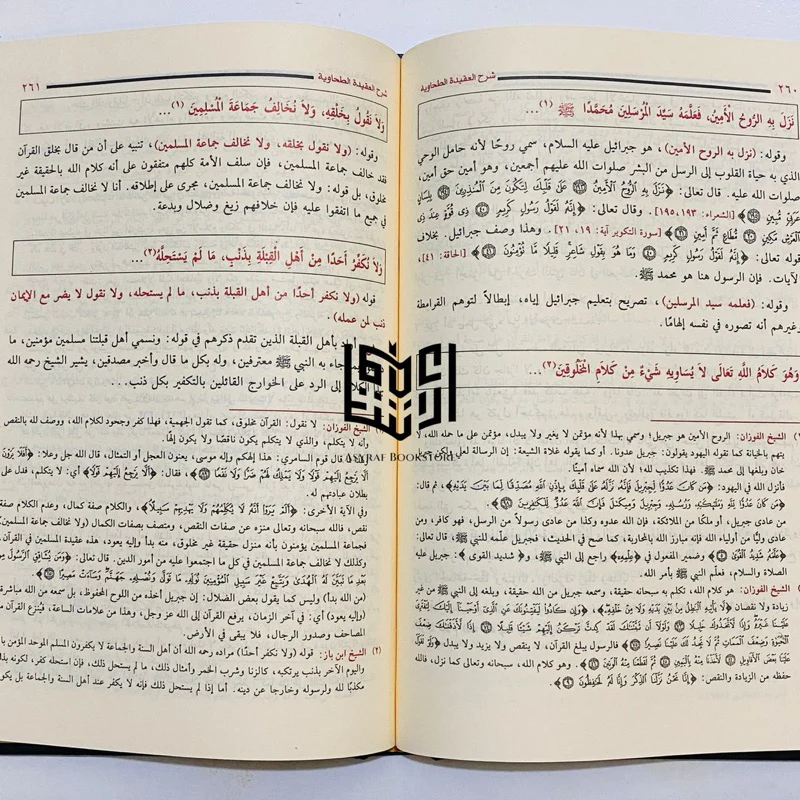 شرح العقيدة الطحاوية
٢٦٠
نَزَلَ بِهِ الرُّوحُ الْأَمِينُ، فَعَلَّمَهُ سَيِّدَ الْمُرْسَلِينَ مُحَمَّدًا ﷺ (١)...
وقوله: (نزل به الروح الأمين)، هو جبرائيل عليه السلام، سمي روحًا لأنه حامل الوحي
الذي به حياة القلوب إلى الرسل من البشر صلوات الله عليه أجمعين، وهو أمين حق أمين،
صلوات الله عليه. قال تعالى: ﴿نَزَلَ بِهِ الرُّوحُ الْأَمِينُ ۝ عَلَى قَلْبِكَ لِتَكُونَ مِنَ الْمُنْذِرِينَ ۝ بِلِسَانٍ
عَرَبِيٍّ مُبِينٍ﴾ [الشعراء: ١٩٣، ١٩٥]. وقال تعالى: ﴿إِنَّهُ لَقَوْلُ رَسُولٍ كَرِيمٍ ۝ ذِي قُوَّةٍ عِنْدَ ذِي
الْعَرْشِ مَكِينٍ ۝ مُطَاعٍ ثَمَّ أَمِينٍ﴾ [سورة التكوير آية: ١٩، ٢١]. وهذا وصف جبرائيل. بخلاف
قوله تعالى: ﴿إِنَّهُ لَقَوْلُ رَسُولٍ كَرِيمٍ ۝ وَمَا هُوَ بِقَوْلِ شَاعِرٍ قَلِيلًا مَا تُؤْمِنُونَ﴾ [الحاقة: ٤١]،
الآيات. فإن الرسول هنا هو محمد ﷺ.
وقوله: (فعلمه سيد المرسلين)، تصريح بتعليم جبرائيل إياه، إبطالًا لتوهم القرامطة
وغيرهم أنه تصوره في نفسه إلهامًا.
وَهُوَ كَلَامُ اللَّهِ تَعَالَى لَا يُسَاوِيهِ شَيْءٌ مِنْ كَلَامِ الْمَخْلُوقِينَ(٢)...
الشيخ الفوزان: الروح الأمين هو جبريل! وسمي بهذا لأنه مؤتمن لا يغير ولا يبدل، مؤتمن على ما حمله الله، لا
يتهم بالخيانة كما تقوله اليهود يقولون: جبريل عدونا. أو كما يقوله غلاة الشيعة: إن الرسالة لعلي ولكن جبريل
خان وبلغها إلى محمد ﷺ. فهذا تكذيب لله؛ لأن الله سماه أمينًا.
فأنزل الله في اليهود: ﴿مَنْ كَانَ عَدُوًّا لِجِبْرِيلَ فَإِنَّهُ نَزَّلَهُ عَلَى قَلْبِكَ بِإِذْنِ اللَّهِ مُصَدِّقًا لِمَا بَيْنَ يَدَيْهِ﴾، ثم قال:
﴿مَنْ كَانَ عَدُوًّا لِلَّهِ وَمَلَائِكَتِهِ وَرُسُلِهِ وَجِبْرِيلَ وَمِيكَالَ فَإِنَّ اللَّهَ عَدُوٌّ لِلْكَافِرِينَ﴾.
من عادى جبريل، أو ملكًا من الملائكة، فإن الله عدوه وكذا من عادى رسولاً من الرسل، فهو كافر، ومن
عادى وليًّا من أولياء الله فإنه مبارز الله بالمحاربة، كما صح في الحديث، فجبريل علّمه للنبي ﷺ، قال تعالى:
﴿عَلَّمَهُ شَدِيدُ الْقُوَى﴾ وضمير المفعول في ﴿علمه﴾ راجع إلى النبي ﷺ، و﴿شديد القوى﴾: جبريل عليه
الصلاة والسلام، فعلّم النبي ﷺ بأمر الله.
الشيخ الفوزان: هو كلام الله، تكلم به سبحانه حقيقة، وسمعه جبريل من الله حقيقة، وبلغه إلى النبي ﷺ من غير
زيادة ولا نقصان ﴿لَا يَأْتِيهِ الْبَاطِلُ مِنْ بَيْنِ يَدَيْهِ وَلَا مِنْ خَلْفِهِ﴾، ﴿وَإِنْ كَادُوا لَيَفْتِنُونَكَ عَنِ الَّذِي أَوْحَيْنَا إِلَيْكَ لِتَفْتَرِيَ
عَلَيْنَا غَيْرَهُ وَإِذًا لَاتَّخَذُوكَ خَلِيلًا ۝ وَلَوْلَا أَنْ ثَبَّتْنَاكَ لَقَدْ كِدْتَ تَرْكَنُ إِلَيْهِمْ شَيْئًا قَلِيلًا ۝ إِذًا لَأَذَقْنَاكَ ضِعْفَ
الْحَيَاةِ وَضِعْفَ الْمَمَاتِ ثُمَّ لَا تَجِدُ لَكَ عَلَيْنَا نَصِيرًا﴾. فالرسول يبلغ القرآن، لا ينقص ولا يزيد ولا يبدل ﴿وَلَوْ تَقَوَّلَ
عَلَيْنَا بَعْضَ الْأَقَاوِيلِ ۝ لَأَخَذْنَا مِنْهُ بِالْيَمِينِ ۝ ثُمَّ لَقَطَعْنَا مِنْهُ الْوَتِينَ﴾. وهو كلام الله، سبحانه وتعالى كما نزل، فالله
حفظه من الزيادة والنقص: ﴿إِنَّا نَحْنُ نَزَّلْنَا الذِّكْرَ وَإِنَّا لَهُ لَحَافِظُونَ﴾.
شرح العقيدة الطحاوية
٢٦١
وَلَا نَقُولُ بِخَلْقِهِ، وَلَا نُخَالِفُ جَمَاعَةَ الْمُسْلِمِينَ (١)...
وقوله: (ولا نقول بخلقه، ولا نخالف جماعة المسلمين)، تنبيه على أن من قال بخلق القرآن
فقد خالف جماعة المسلمين، فإن سلف الأمة كلهم متفقون على أنه كلام الله بالحقيقة غير
مخلوق، بل قوله: ولا نخالف جماعة المسلمين، مجرى على إطلاقه. أنا لا نخالف جماعة المسلمين
في جميع ما اتفقوا عليه فإن خلافهم زيغ وضلال وبدعة.
وَلَا نُكَفِّرُ أَحَدًا مِنْ أَهْلِ الْقِبْلَةِ بِذَنْبٍ، مَا لَمْ يَسْتَحِلَّهُ(٢)...
قوله (ولا نكفر أحدًا من أهل القبلة بذنب، ما لم يستحله، ولا نقول لا يضر مع الإيمان
ذنب لمن عمله).
أراد بأهل القبلة الذين تقدم ذكرهم في قوله: ونسمي أهل قبلتنا مسلمين مؤمنين، ما
جاء به النبي ﷺ معترفين، وله بكل ما قال وأخبر مصدقين، يشير الشيخ رحمه الله
الكلام إلى الرد على الخوارج القائلين بالتكفير بكل ذنب...
ASHRAF BOOKSTORE
الشيخ الفوزان: لا نقول: القرآن مخلوق، كما تقول الجهمية، فهذا كفر وجحود لكلام الله، ووصف لله بالنقص
وأنه لا يتكلم، والذي لا يتكلم يكون ناقصًا ولا يكون إلهًا.
قال قوم السامري: هذا إلهكم وإله موسى، يعنون العجل أو التمثال، قال الله جل وعلا: ﴿أَفَلَا يَرَوْنَ
أَلَّا يَرْجِعُ إِلَيْهِمْ قَوْلًا وَلَا يَمْلِكُ لَهُمْ ضَرًّا وَلَا نَفْعًا﴾، فقال: ﴿أَلَّا يَرْجِعُ إِلَيْهِمْ قَوْلًا﴾ أي: لا يتكلم، فدل على
بطلان عبادتهم له.
وفي الآية الأخرى: ﴿أَلَمْ يَرَوْا أَنَّهُ لَا يُكَلِّمُهُمْ وَلَا يَهْدِيهِمْ سَبِيلًا﴾، والكلام صفة كمال، وعدم الكلام صفة
نقص، فالله سبحانه وتعالى منزه عن صفات النقص، ومتصف بصفات الكمال
فجماعة المسلمين يؤمنون بأنه منزل حقيقة غير مخلوق، منه بدأ وإليه يعود، هذه عقيدة المسلمين في القرآن
وكذلك لا نخالف جماعة المسلمين في كل ما اجتمعوا عليه من أمور الدين. قال تعالى: ﴿وَمَنْ يُشَاقِقِ الرَّسُولَ مِنْ
بَعْدِ مَا تَبَيَّنَ لَهُ الْهُدَى وَيَتَّبِعْ غَيْرَ سَبِيلِ الْمُؤْمِنِينَ نُوَلِّهِ مَا تَوَلَّى وَنُصْلِهِ جَهَنَّمَ وَسَاءَتْ مَصِيرًا﴾.
(من الله بدأ) وليس كما يقول بعض الضلال: إن جبريل أخذه من اللوح المحفوظ، بل سمعه من الله مباشرة
(وإليه يعود) أي: في آخر الزمان، يرفع القرآن إلى الله عز وجل، وهذا من علامات الساعة، فيُنزع القرآن من
المصاحف وصدور الرجال، فلا يبقى في الأرض.
(٢) الشيخ ابن باز: قوله (ولا نكفر أحدًا) مراده رحمه الله أن أهل السنة والجماعة لا يكفرون المسلم الموحد المؤمن بالله
واليوم الآخر بذنب يرتكبه، كالزنا وشرب الخمر وأمثال ذلك، ما لم يستحل ذلك، فإن استحله كفر، لكونه بذلك
مكذبًا لله ولرسوله وخارجا عن دينه. أما إذا لم يستحل ذلك فإنه لا يكفر عند أهل السنة والجماعة بل يكون